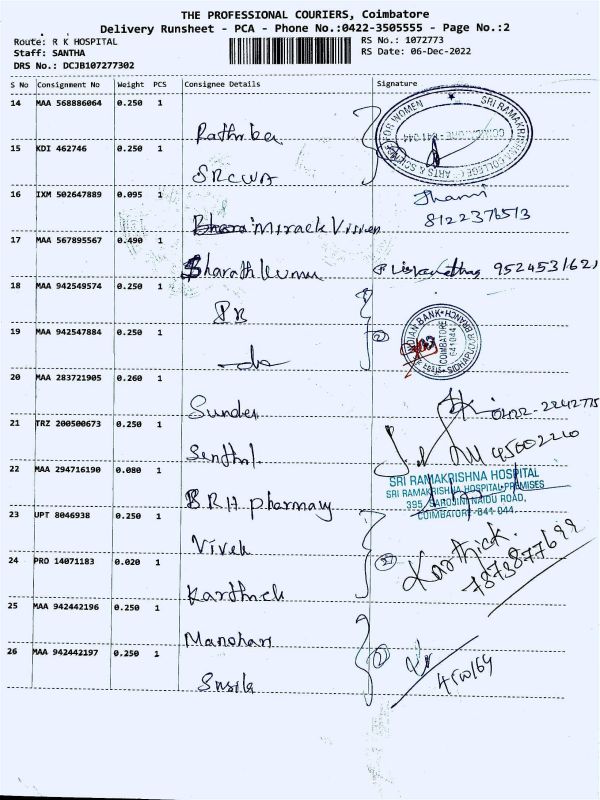 THE PROFESSIONAL COURIERS, Coimbatore
Delivery Runsheet - PCA - Phone No.:0422-3505555 - Page No.:2
Route: R K HOSPITAL
Staff: SANTHA
DRS No.: DCJB107277302
RS No.: 1072773
RS Date: 06-Dec-2022
S No Consignment No Weight PCS Consignee Details Signature
14 MAA 568886064 0.250 1
SRI RAMAKRISHNA COLLEGE OF ARTS & SCIENCE FOR WOMEN
COIMBATORE - 641 044
15 KDI 462746 0.250 1 SRCWA
16 IXM 502647889 0.095 1 Miracle Vision
8122376513
17 MAA 567895567 0.490 1 Bharath Kumar
9524531621
18 MAA 942549574 0.250 1
INDIAN BANK
COIMBATORE
641044
19 MAA 942547884 0.250 1
2
20 MAA 283721905 0.260 1 Sunder
0422-2242775
21 TRZ 200500673 0.250 1 Senthil
45002210
22 MAA 294716190 0.080 1 B.R.H pharmacy
SRI RAMAKRISHNA HOSPITAL
SRI RAMAKRISHNA HOSPITAL PREMISES
395, SAROJINI NAIDU ROAD,
COIMBATORE-641 044.
23 UPT 8046938 0.250 1 Vivek
24 PRO 14071183 0.020 1 Karthick
Karthick.
7873877692
25 MAA 942442196 0.250 1 Manohari
26 MAA 942442197 0.250 1 Susila